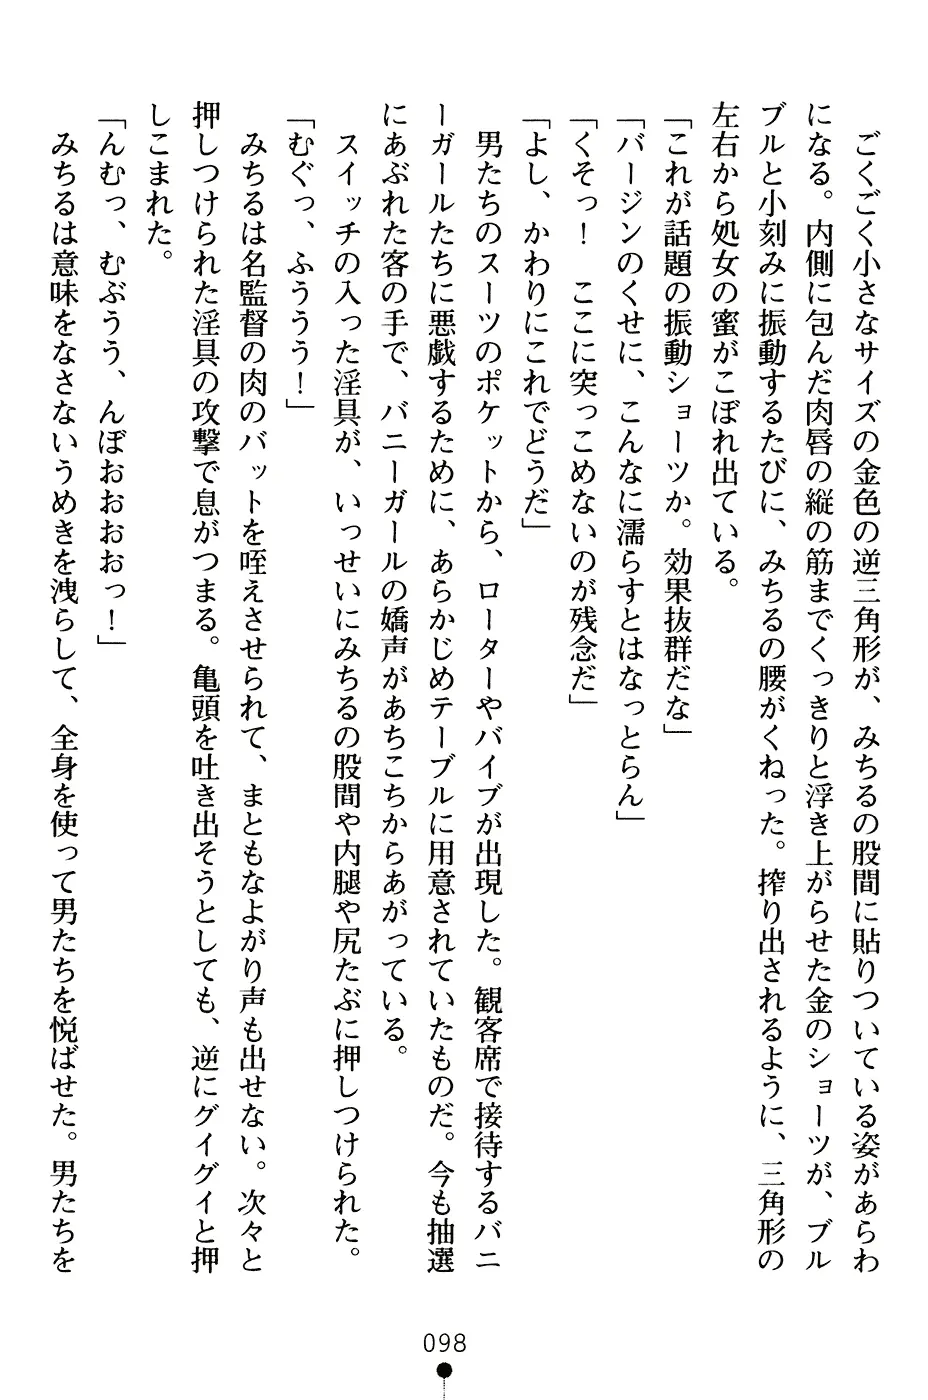 ごくごく小さなサイズの金色の逆三角形が、みちるの股間に貼りついている姿があらわ
になる。内側に包んだ肉唇の縦の筋までくっきりと浮き上がらせた金のショーツが、ブル
ブルと小刻みに振動するたびに、みちるの腰がくねった。搾り出されるように、三角形の
左右から処女の蜜がこぼれ出ている。
「これが話題の振動ショーツか。効果抜群だな」
「バージンのくせに、こんなに濡らすとはなっとらん」
「くそっ！　ここに突っこめないのが残念だ」
「よし、かわりにこれでどうだ」
男たちのスーツのポケットから、ローターやバイブが出現した。観客席で接待するバニ
ーガールたちに悪戯するために、あらかじめテーブルに用意されていたものだ。今も抽選
にあぶれた客の手で、バニーガールの嬌声があちこちからあがっている。
スイッチの入った淫具が、いっせいにみちるの股間や内腿や尻たぶに押しつけられた。
「むぐっ、ふううう！」
みちるは名監督の肉のバットを咥えさせられて、まともなよがり声も出せない。次々と
押しつけられた淫具の攻撃で息がつまる。亀頭を吐き出そうとしても、逆にグイグイと押
しこまれた。
「んむっ、むぶうう、んぼおおおおっ！」
みちるは意味をなさないうめきを洩らして、全身を使って男たちを悦ばせた。男たちを
098